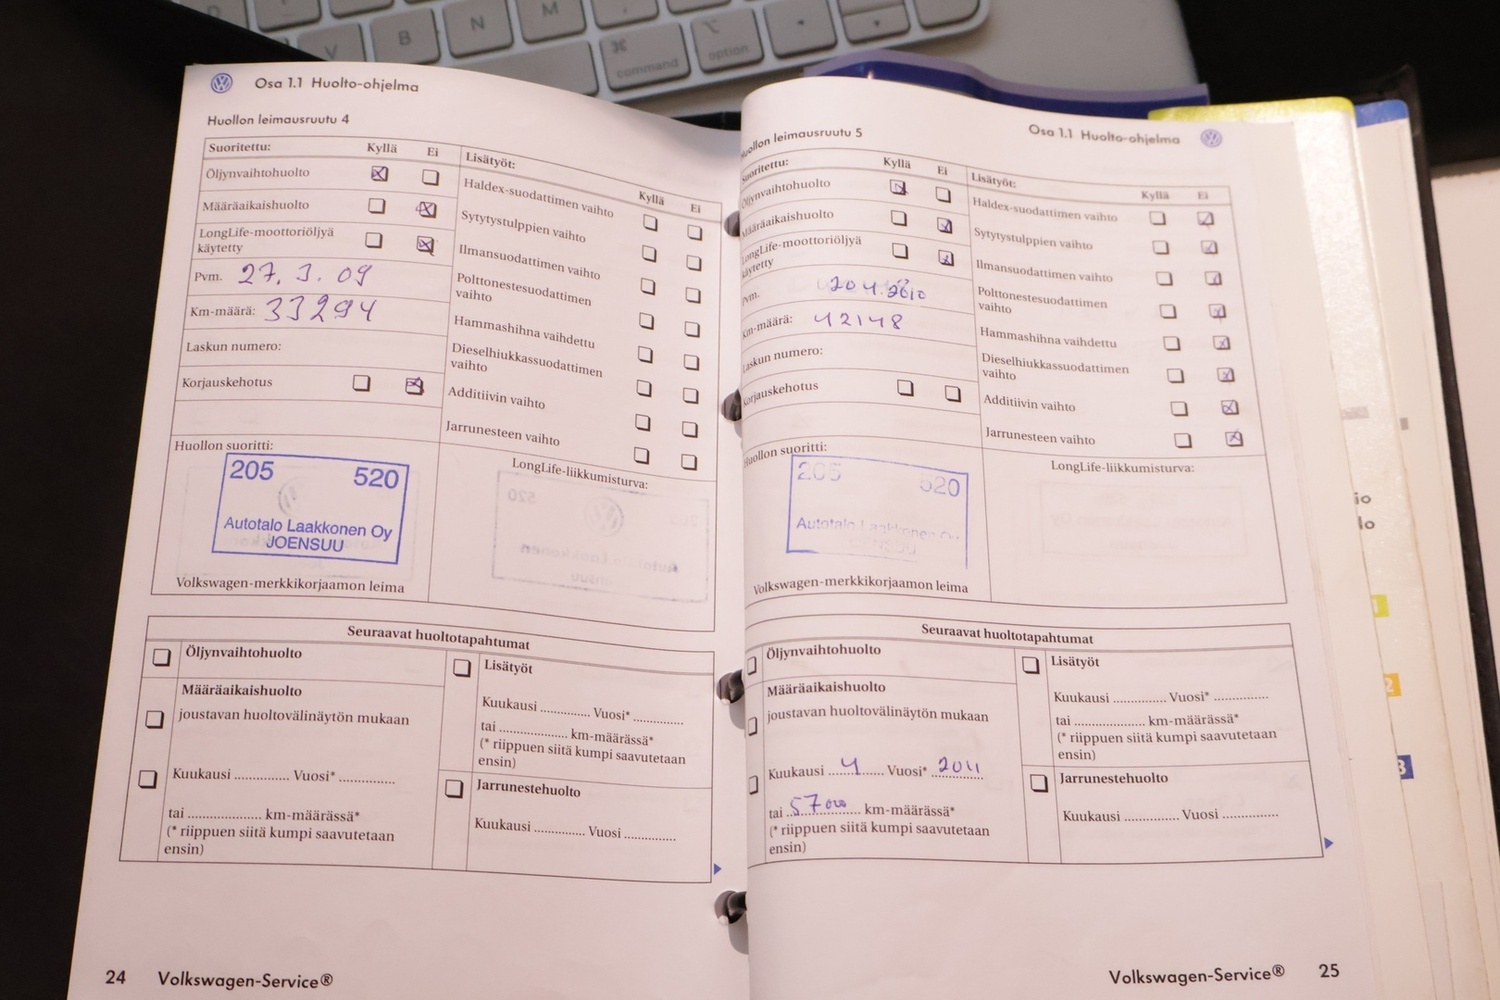 D
M
V
B
N
⌘
command
⌥
option
Osa 1.1 Huolto-ohjelma
Huollon leimausruutu 4
Suoritettu: Kyllä Ei
Öljynvaihtohuolto
Määräaikaishuolto
LongLife-moottoriöljyä
käytetty
Pvm. 27. 3. 09
Km-määrä: 33294
Laskun numero:
Korjauskehotus
Huollon suoritti:
205 520
Autotalo Laakkonen Oy
JOENSUU
Volkswagen-merkkikorjaamon leima
Lisätyöt:
Kyllä Ei
Haldex-suodattimen vaihto
Sytytystulppien vaihto
Ilmansuodattimen vaihto
Polttonestesuodattimen
vaihto
Hammashihna vaihdettu
Dieselhiukkassuodattimen
vaihto
Additiivin vaihto
Jarrunesteen vaihto
LongLife-liikkumisturva:
Seuraavat huoltotapahtumat
Öljynvaihtohuolto
Määräaikaishuolto
joustavan huoltovälinäytön mukaan
Kuukausi ............. Vuosi* .............
tai .................. km-määrässä*
(* riippuen siitä kumpi saavutetaan
ensin)
Lisätyöt
Kuukausi ............ Vuosi* ............
tai ................. km-määrässä*
(* riippuen siitä kumpi saavutetaan
ensin)
Jarrunestehuolto
Kuukausi ............ Vuosi .............
24 Volkswagen-Service®
Osa 1.1 Huolto-ohjelma
Huollon leimausruutu 5
Suoritettu: Kyllä Ei
Öljynvaihtohuolto
Määräaikaishuolto
LongLife-moottoriöljyä
käytetty
Pvm.
Km-määrä: 42148
Laskun numero:
Korjauskehotus
Huollon suoritti:
205 520
Autotalo Laakkonen Oy
JOENSUU
Volkswagen-merkkikorjaamon leima
Lisätyöt:
Kyllä Ei
Haldex-suodattimen vaihto
Sytytystulppien vaihto
Ilmansuodattimen vaihto
Polttonestesuodattimen
vaihto
Hammashihna vaihdettu
Dieselhiukkassuodattimen
vaihto
Additiivin vaihto
Jarrunesteen vaihto
LongLife-liikkumisturva:
Seuraavat huoltotapahtumat
Öljynvaihtohuolto
Määräaikaishuolto
joustavan huoltovälinäytön mukaan
Kuukausi ...4... Vuosi* 2011
tai ..57000.. km-määrässä*
(* riippuen siitä kumpi saavutetaan
ensin)
Lisätyöt
Kuukausi ............. Vuosi* .............
tai ................. km-määrässä*
(* riippuen siitä kumpi saavutetaan
ensin)
Jarrunestehuolto
Kuukausi ............. Vuosi .............
Volkswagen-Service® 25
io
lo
1
2
3